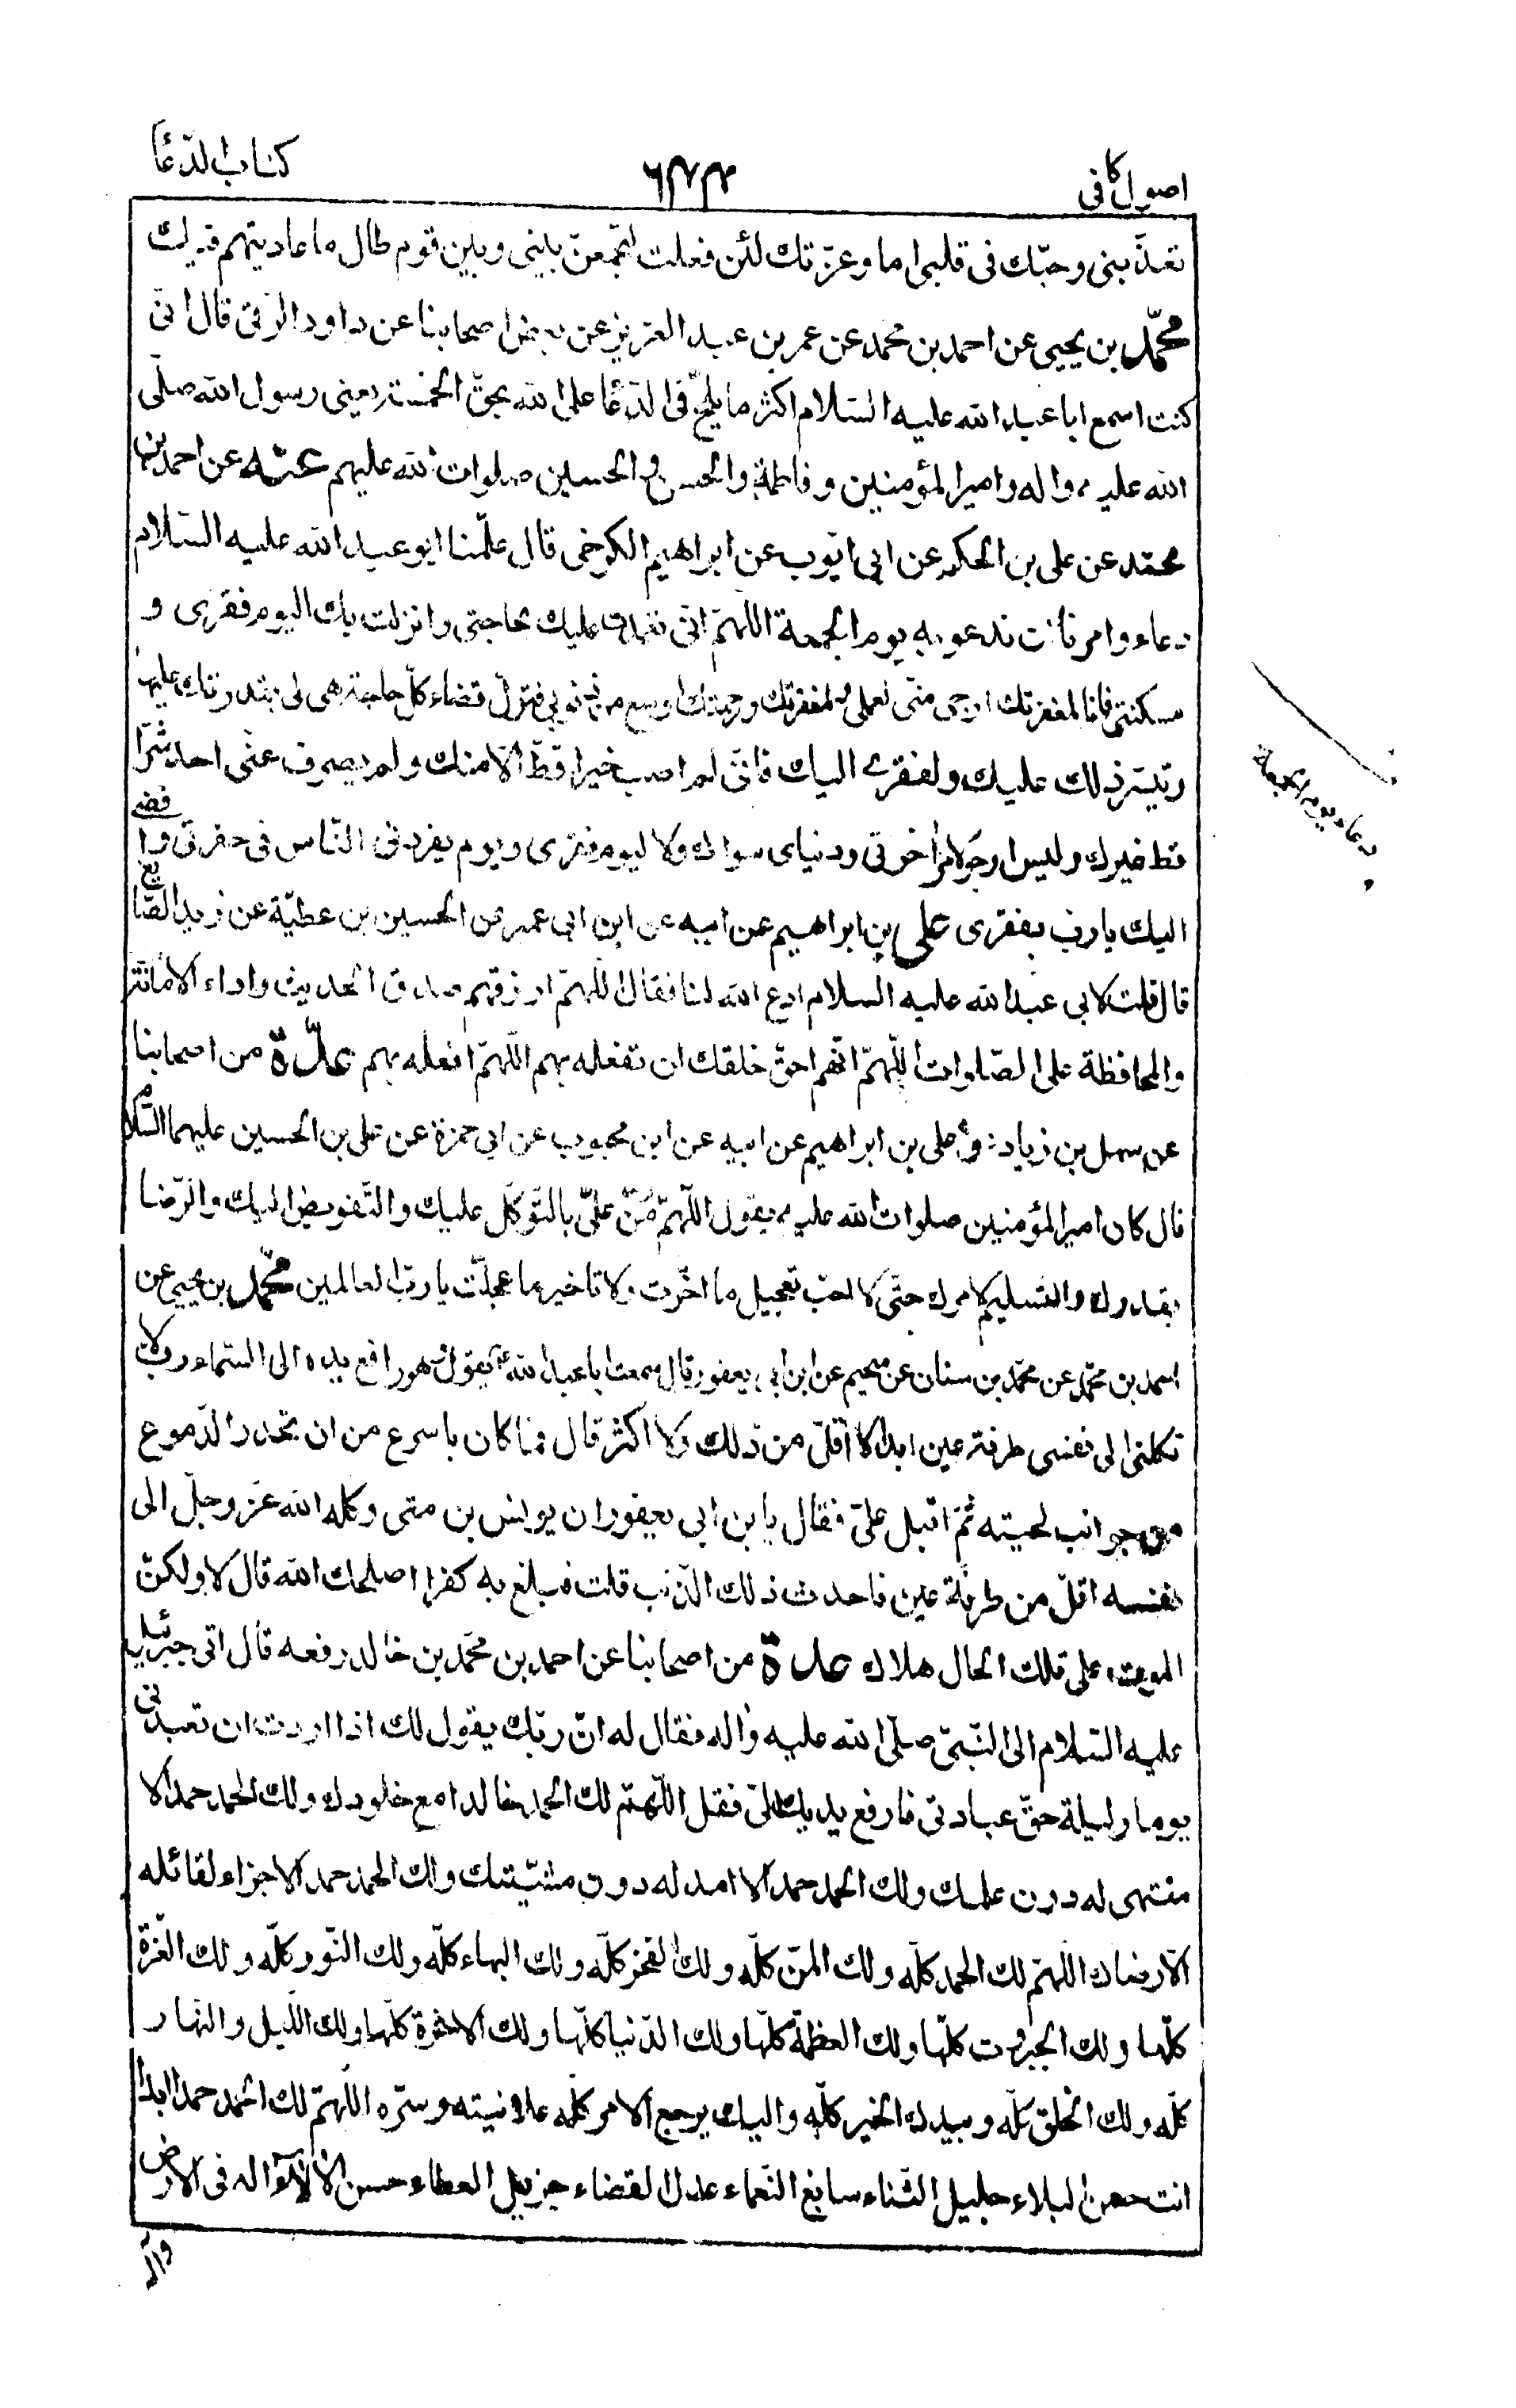 اصول كافى
٦٣٣
كتاب الدّعا
تعذّبنى وحبّك فى قلبى اما وعزّتك لئن فعلت لتجمعنّ بينى وبين قوم طال ما عاديتهم فيك
محمّد بن يحيى عن احمد بن محمد عن عمر بن عبد العزيز عن بعض اصحابنا عن داود الرّقى قال انّى
كنت اسمع ابا عبد الله عليه السّلام اكثر ما يلحّ فى الدّعا على الله بحقّ الخمسة يعنى رسول الله صلّى
الله عليه واله وامير المؤمنين وفاطمة والحسن والحسين صلوات الله عليهم عنه عن احمد بن
محمّد عن على بن الحكم عن ابى ايّوب عن ابراهيم الكرخى قال علّمنا ابو عبد الله عليه السّلام
دعاء وامرنا ان ندعو به يوم الجمعة اللّهمّ انّى تعمّدت عليك بحاجتى وانزلت بك اليوم فقرى و
مسكنتى فانا لمغفرتك ارجى منّى لعملى ولمغفرتك ورحمتك اوسع من ذنوبى فتولّ قضاء كلّ حاجة هى لى بقدرتك عليها
وتيسّر ذلك عليك ولفقرى اليك فانّى لم اصب خيرا قطّ الّا منك ولم يصرف عنّى احد شرّا
قط غيرك وليس ارجو لامر اخرتى ودنياى سواك ولا ليوم فقرى ويوم يفردنى النّاس فى حفرتى وافضى
اليك يا رب بفقرى على بن ابراهيم عن ابيه عن ابن ابى عمير عن الحسين بن عطيّة عن زيد الصّايغ
قال قلت لابى عبد الله عليه السلام ادع الله لنا فقال اللّهمّ ارزقهم صدق الحديث واداء الامانة
والمحافظة على الصّلوات اللّهمّ انّهم احقّ خلقك ان تفعله بهم اللّهمّ افعله بهم عدّة من اصحابنا
عن سهل بن زياد وعلى بن ابراهيم عن ابيه عن ابن محبوب عن ابى حمزة عن على بن الحسين عليهما السّلام
قال كان امير المؤمنين صلوات الله عليه يقول اللّهمّ مُنّ علىّ بالتّوكّل عليك والتّفويض اليك والرّضا
بقدرك والتّسليم لامرك حتّى لا احبّ تعجيل ما اخّرت ولا تاخير ما عجّلت يا ربّ العالمين محمّد بن يحيى عن
احمد بن محمّد عن محمّد بن سنان عن سحيم عن ابن ابى يعفور قال سمعت ابا عبد الله ع يقول وهو رافع يده الى السّماء ربّ لا
تكلنى الى نفسى طرفة عين ابدا لا اقلّ من ذلك ولا اكثر قال فما كان باسرع من ان تحدر الدّموع
من جوانب لحيته ثمّ اقبل علىّ فقال يا بن ابى يعفور ان يونس بن متى وكله الله عزّ وجلّ الى
نفسه اقلّ من طرفة عين فاحدث ذلك الذّنب قلت فبلغ به كفرا اصلحك الله قال لا ولكنّ
الموت على تلك الحال هلاك عدة من اصحابنا عن احمد بن محمّد بن خالد رفعه قال اتى جبرئيل
عليه السّلام الى النّبىّ صلّى الله عليه واله فقال له انّ ربّك يقول لك اذا اردت ان تعبدنى
يوما وليلة حقّ عبادتى فارفع يديك الىّ فقل اللّهمّ لك الحمد خالدا مع خلودك ولك الحمد حمدا لا
منتهى له دون علمك ولك الحمد حمدا لا امد له دون مشيّتك ولك الحمد حمدا لا جزاء لقائله
الّا رضاك اللّهمّ لك الحمد كلّه ولك المنّ كلّه ولك الفخر كلّه ولك البهاء كلّه ولك النّور كلّه ولك العزّة
كلّها ولك الجبروت كلّها ولك العظمة كلّها ولك الدّنيا كلّها ولك الاخرة كلّها ولك اللّيل والنّهار
كلّه ولك الخلق كلّه وبيدك الخير كلّه واليك يرجع الامر كلّه علانيته وسرّه اللّهمّ لك الحمد حمدا ابدا
انت حسن البلاء جليل الثّناء سابغ النّعماء عدل القضاء جزيل العطاء حسن الالآء اله فى الارض
دعاء يوم الجمعة
واله